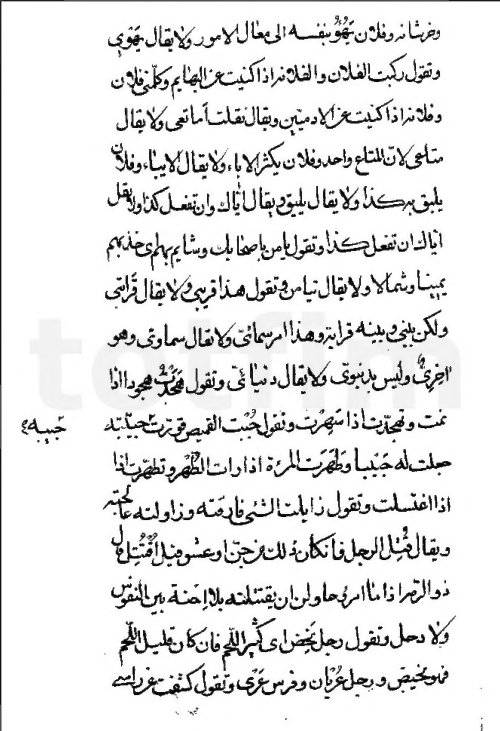 وخرشا نه وفلان يَهْوُو بنفسه الى معالى الامور ولا يقال يَهْوى
وتقول ركبت الفلان والفلانه اذا كنيت عن البهايم وكلمنى فلان
وفلانه اذا كنيت عن الادميين ويقال نقلت أمتعى ولا يقال
متاعى لان المتاع واحد وفلان يكثر الاباء ولا يقال الايباء وفلان
يليق به كذا ولا يقال يليق ويقال اياك وان تفعل كذا ولا يقل
اياك ان تفعل كذا وتقول يامن باصحابك وشايم بهم اى خذ بهم
يمينا وشمالا ولا يقال تيامن وتقول هذا قريبى ولا يقال قرابتى
ولكن بينى وبينه قرابة وهذا امر سمائى ولا يقال سماوى وهو
اخروى وليس بدنيوى ولا يقال دنيائى وتقول هَجَدْتُ هجودا اذا
نمت وتهجدت اذا سهرت وتقول جُبْت القميص قورت جيبه
جيبه
جعلت له جَيْبا وطَهُرَت المرءة اذا رات الطُّهْر وتطهرت اذا
اذا اغتسلت وتقول زايلت الشئ فارقته وزاولته عالجته
ويقال قُتِل الرجل فان كان ذلك من جن او عشق قيل اقْتُتِل قال
ذو الرمه اذا ما امرء حاولن ان يقتتلنه بلا احنة بين النفوس
ولا دحل وتقول رجل نَحِض اى كثير اللحم فان كان قليل اللحم
فهو نحيض ورجل عُرْيان وفرس عُرْى وتقول كشفت عن راسى